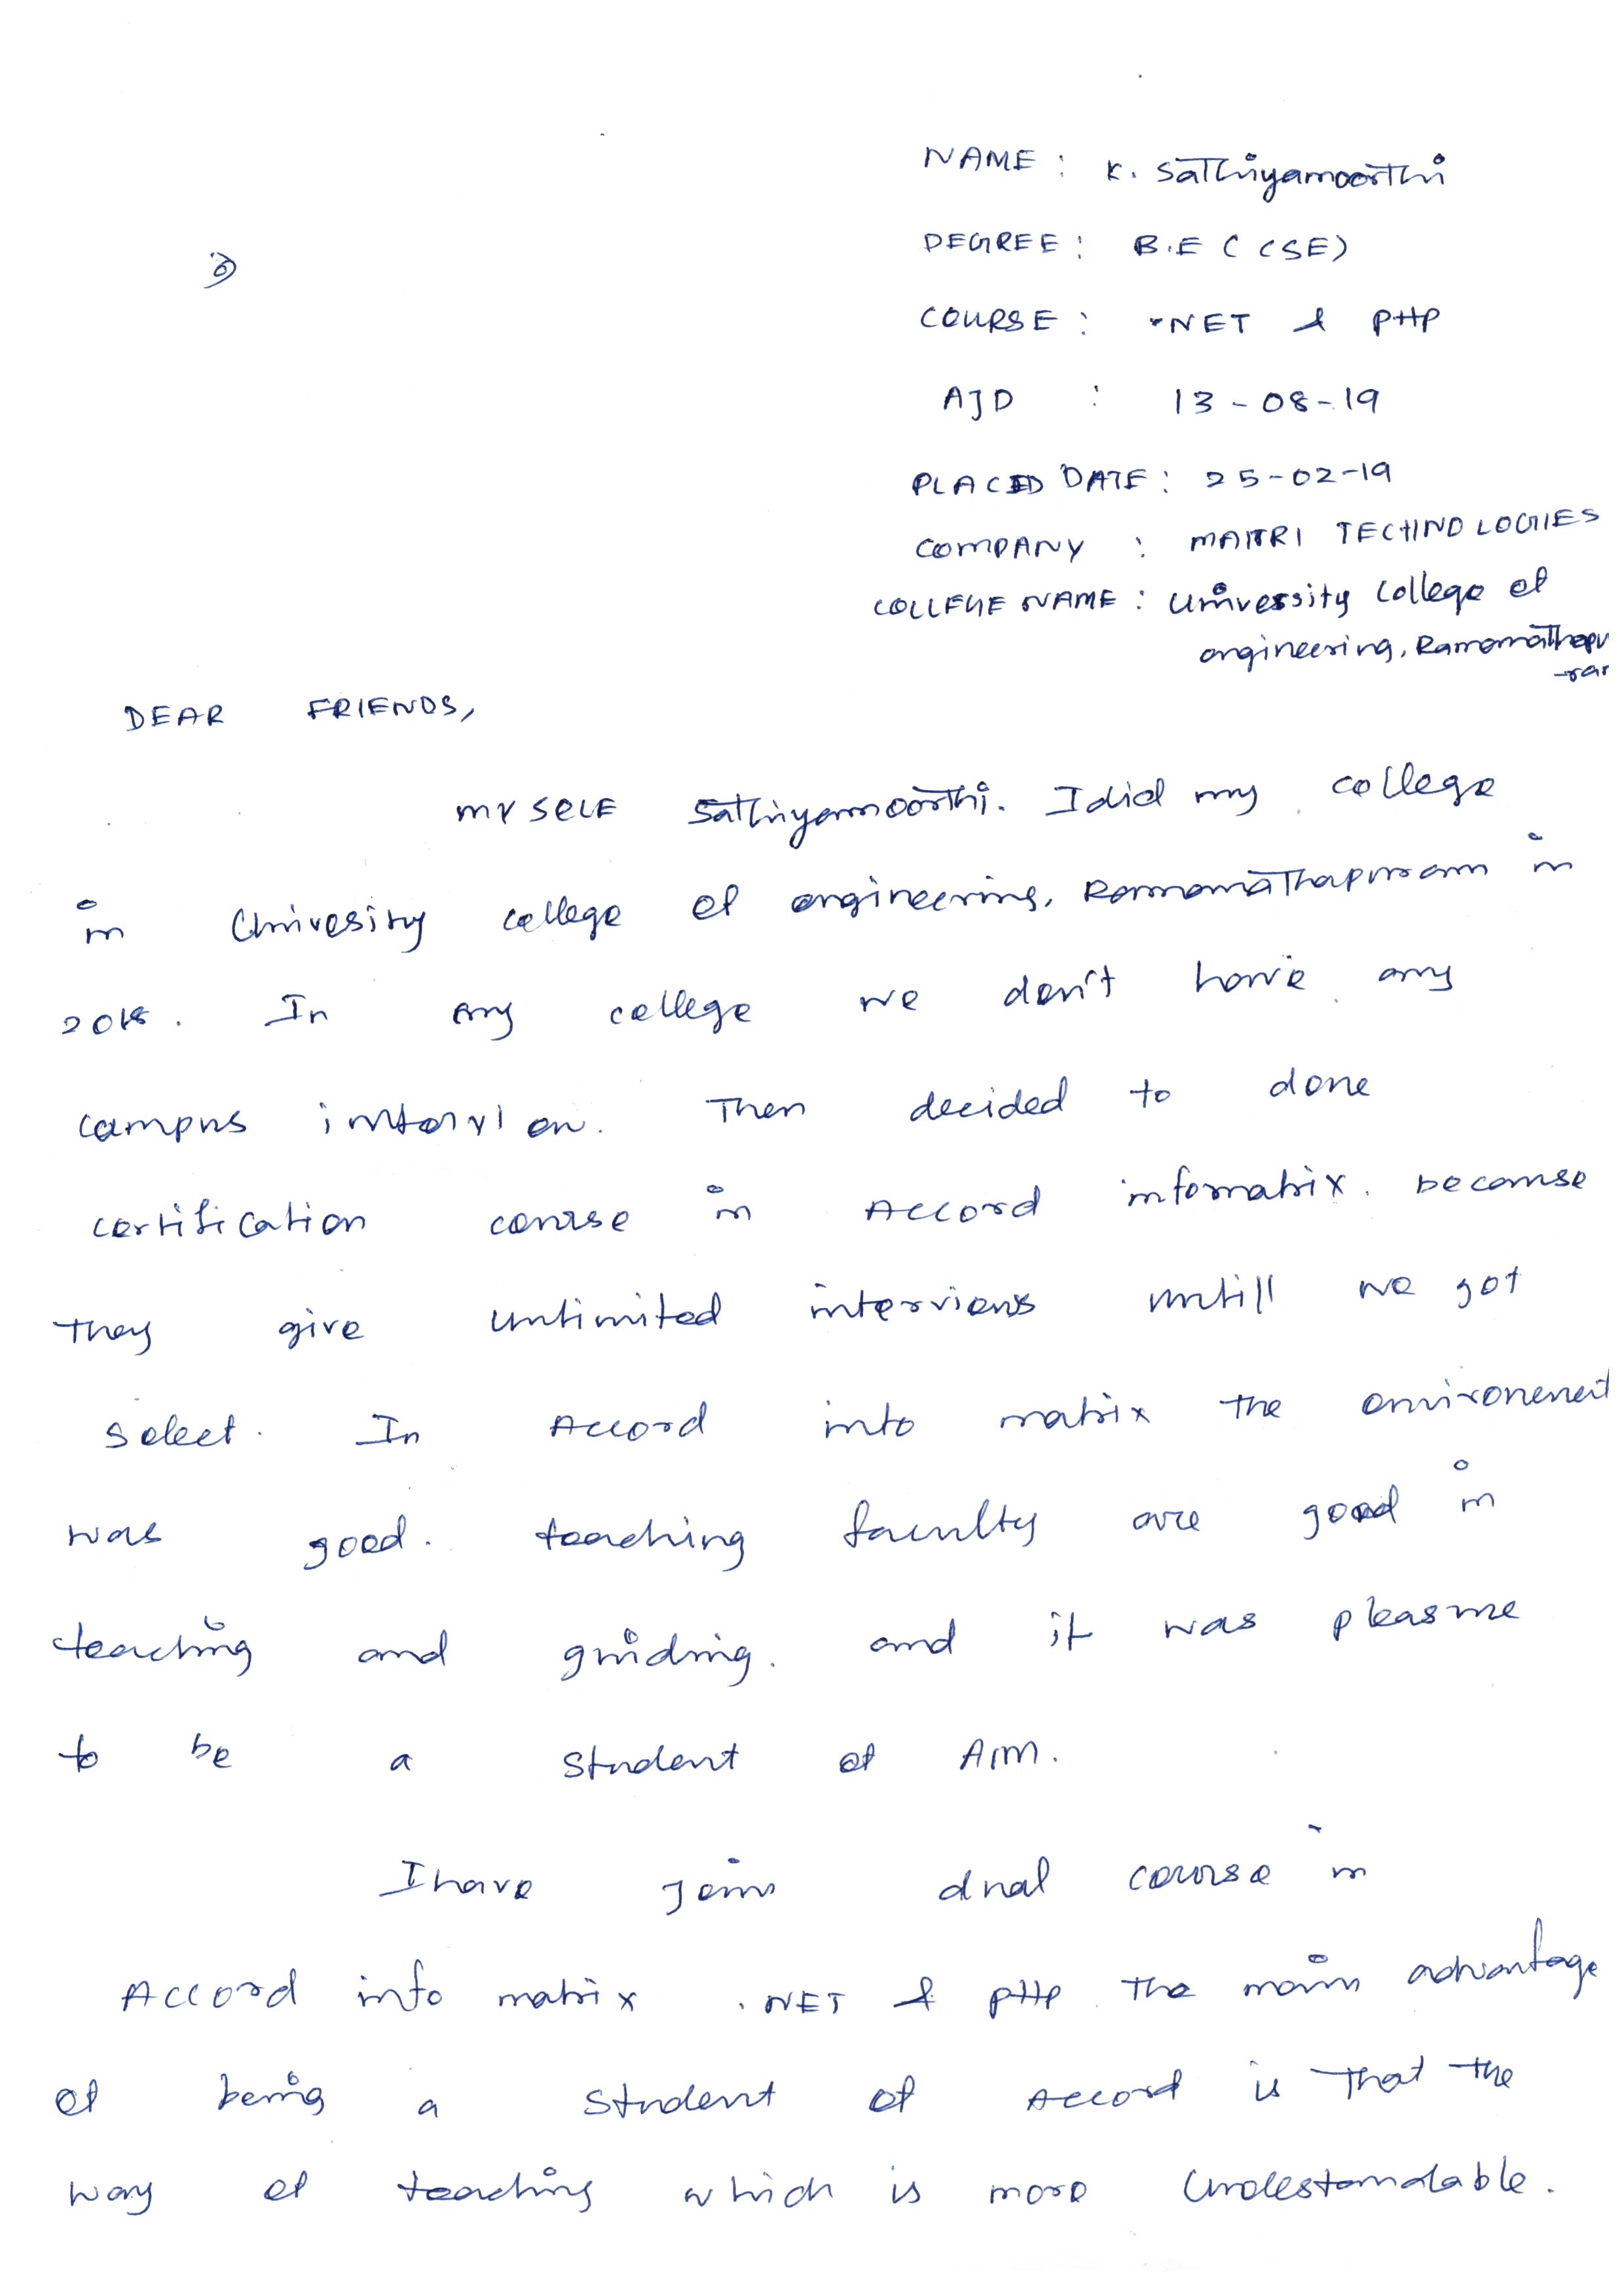 NAME : K. Sathiyamoorthi
DEGREE : B.E (CSE)
COURSE : .NET & PHP
AJD : 13-08-19
PLACED DATE : 25-02-19
COMPANY : MAITRI TECHNOLOGIES
COLLEGE NAME : University College of
engineering, Ramanathapu
-ra
DEAR FRIENDS,
MY SELF Sathiyamoorthi. I did my college
in Univesity college of engineering, Ramanathapuram in
2018. In my college we don't have any
campus intervi ew. Then decided to done
certification course in Accord infomatrix. because
They give unlimited interviews untill we got
select. In Accord info matrix the environenent
was good. teaching faculty are good in
teaching and guiding. and it was pleasure
to be a student of AIM.
I have join dual course in
Accord info matrix .NET & PHP. The main advantage
of being a student of Accord is that the
way of teaching which is more Undestandable.